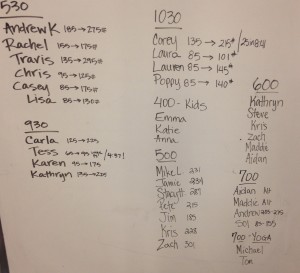 530
Andrew K 185→275#
Rachel 155→175#
Travis 135→295#
Chris 95→125#
Casey 85→175#
Lisa 85→130#
930
Carla 125→225
Tess 65→95
Karen 95→175
Kathryn 135→225
1030
Corey 135→215#
Laura 85→101#
Lauren 85→145#
Poppy 85→140#
400 - Kids
Emma
Katie
Anna
500
Mike L 231
Jamie 234
Stewart 287
Pete 215
Jim 185
Kris 228
Zach 301
600
Kathryn
Steve
Kris
Zach
Maddie
Aidan
700
Aidan Alt
Maddie Alt
Andrew 285-235
700 - YOGA
Michael
Tom